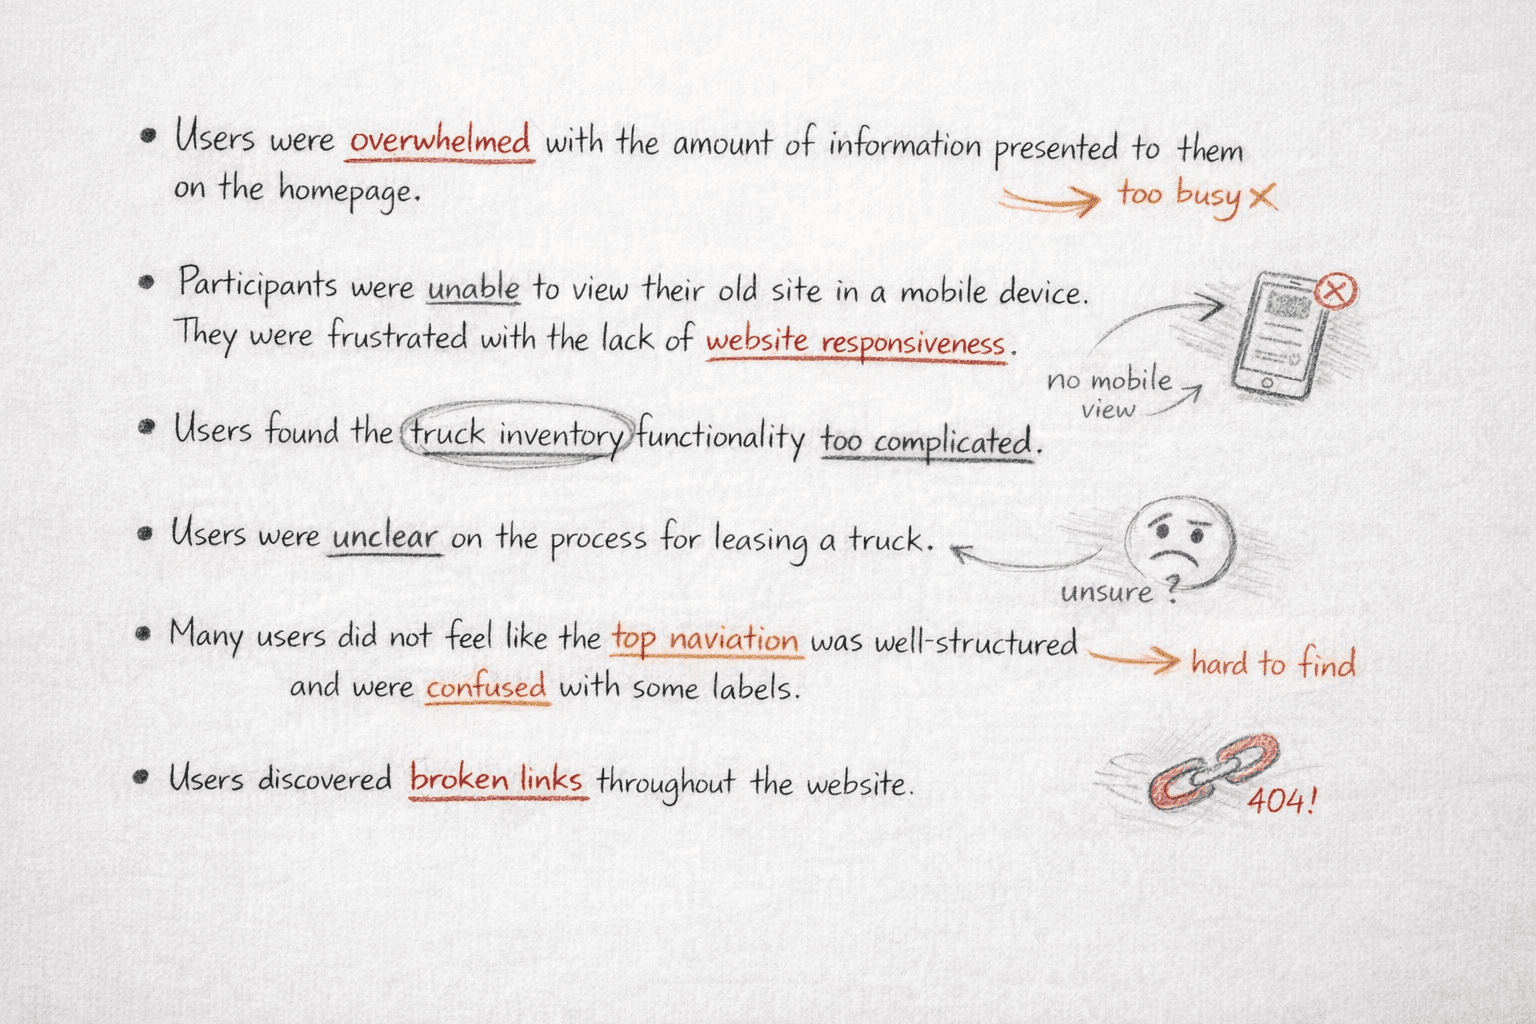 • Users were overwhelmed with the amount of information presented to them
on the homepage.
too busy X
• Participants were unable to view their old site in a mobile device.
They were frustrated with the lack of website responsiveness.
no mobile
view
• Users found the truck inventory functionality too complicated.
• Users were unclear on the process for leasing a truck.
unsure ?
• Many users did not feel like the top naviation was well-structured
hard to find
and were confused with some labels.
• Users discovered broken links throughout the website.
404!